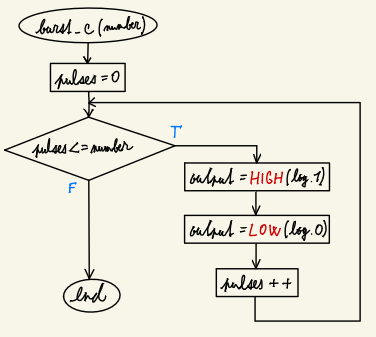 burst_c (number)
pulses = 0
pulses <= number
T
F
output = HIGH (log. 1)
output = LOW (log. 0)
pulses ++
end